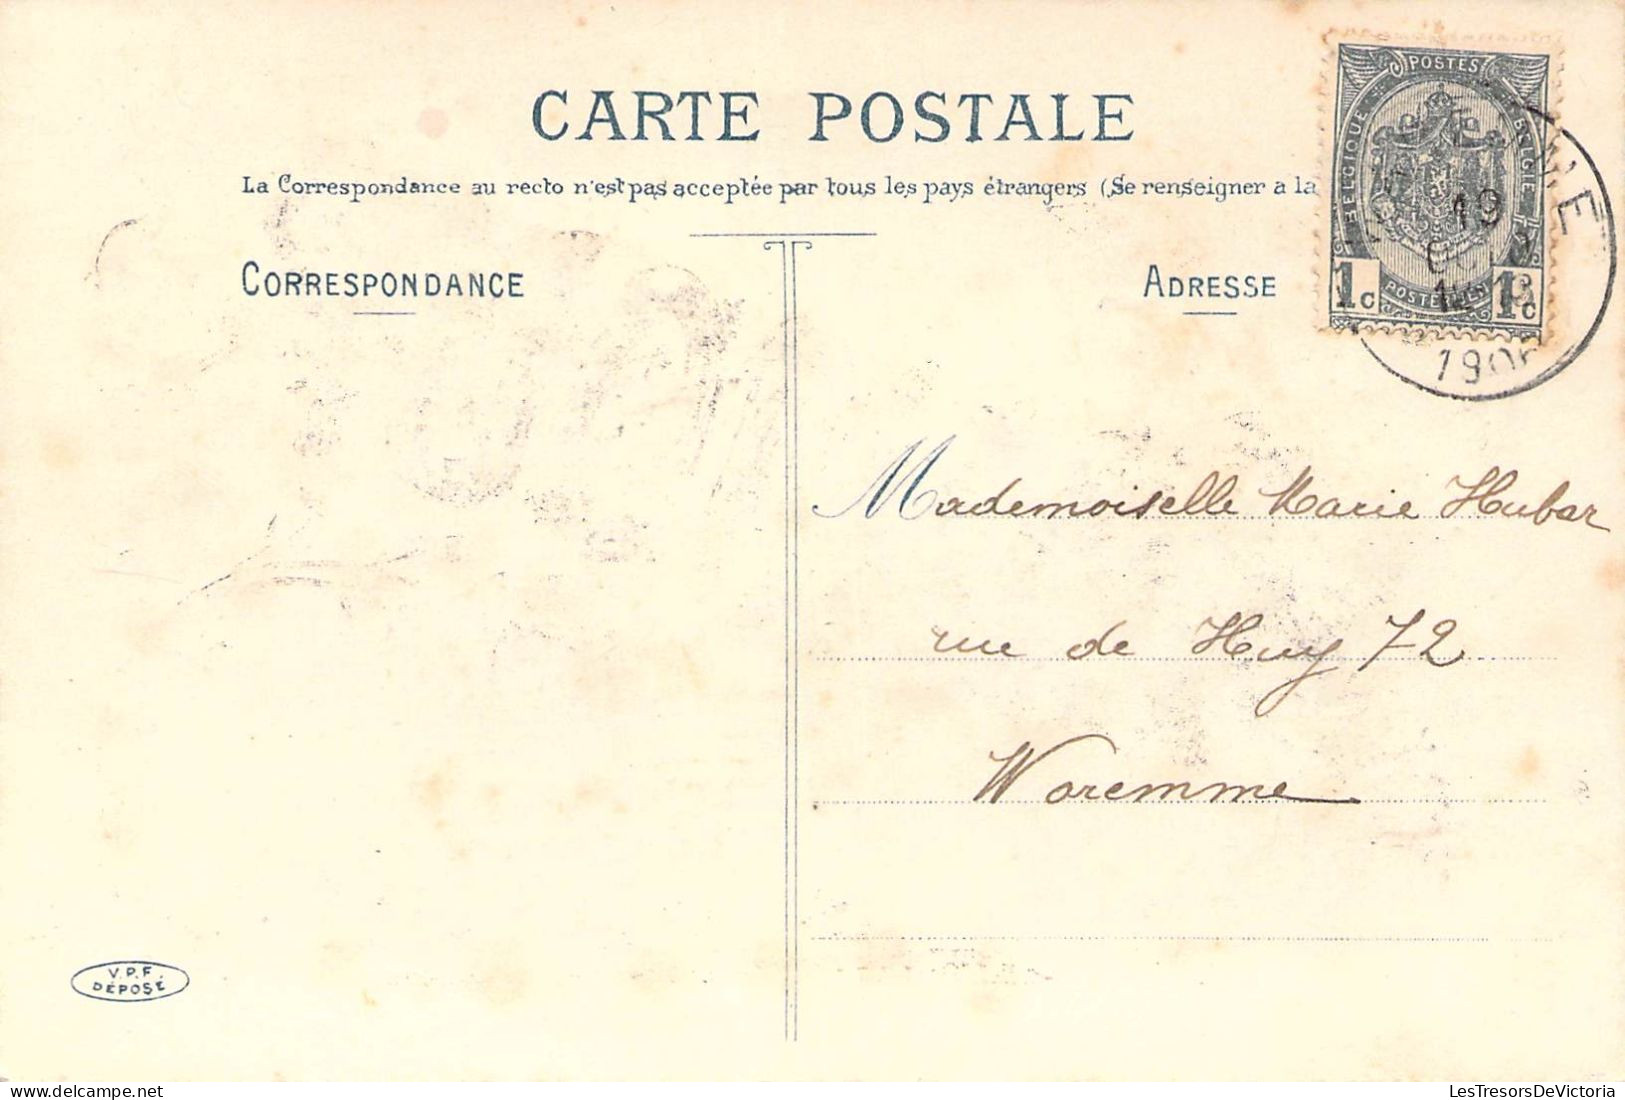 CARTE POSTALE
La Correspondance au recto n'est pas acceptée par tous les pays étrangers (Se renseigner a la
CORRESPONDANCE
ADRESSE
POSTES
BELGIQUE
BELGIË
1c
1c
POSTERIJEN
19
Mademoiselle Marie Hubar
rue de Huy 72
Waremme
V.P.F.
DÉPOSÉ
LesTresorsDeVictoria